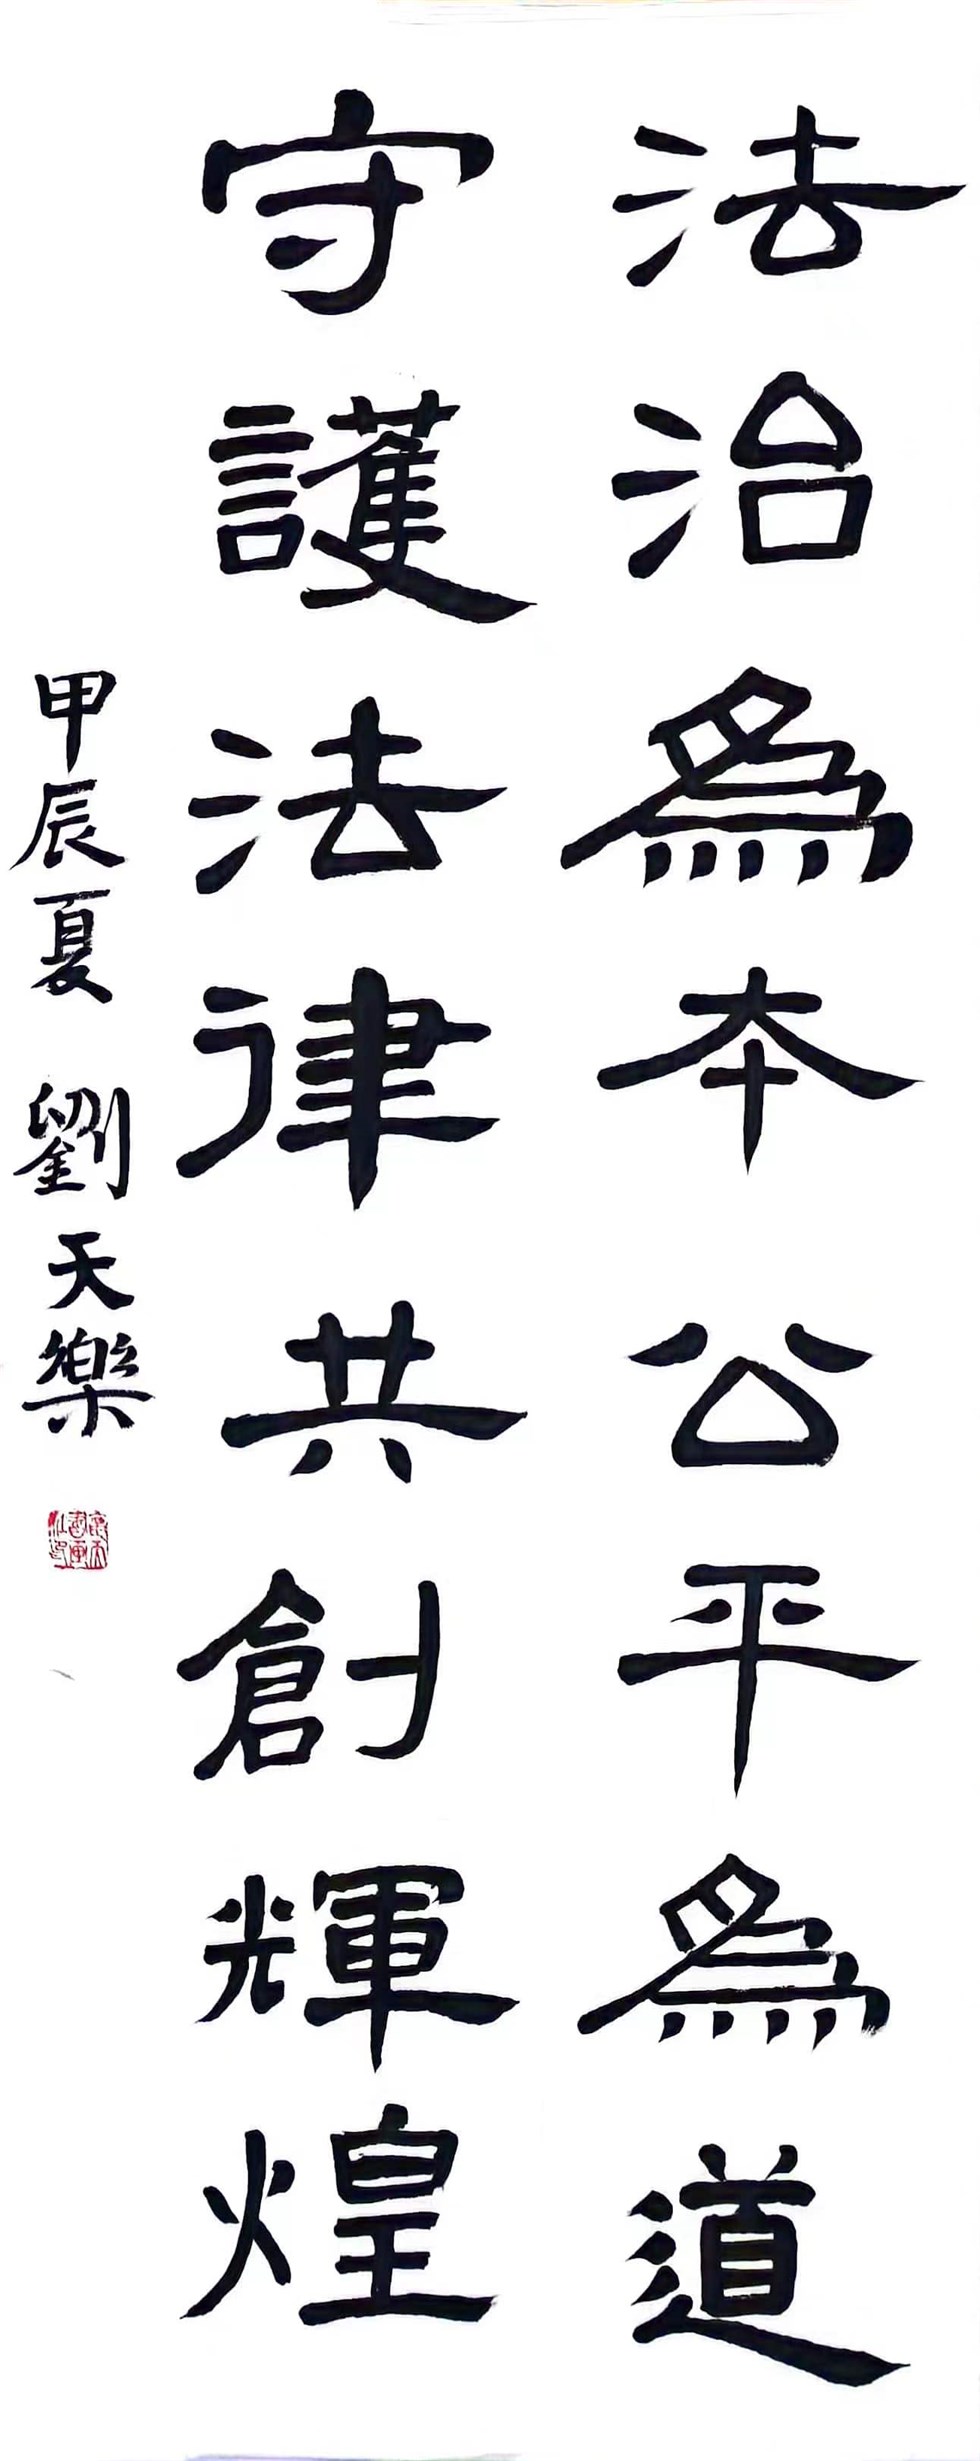 法治為本公平為道
守護法律共創輝煌
甲辰夏 劉天樂